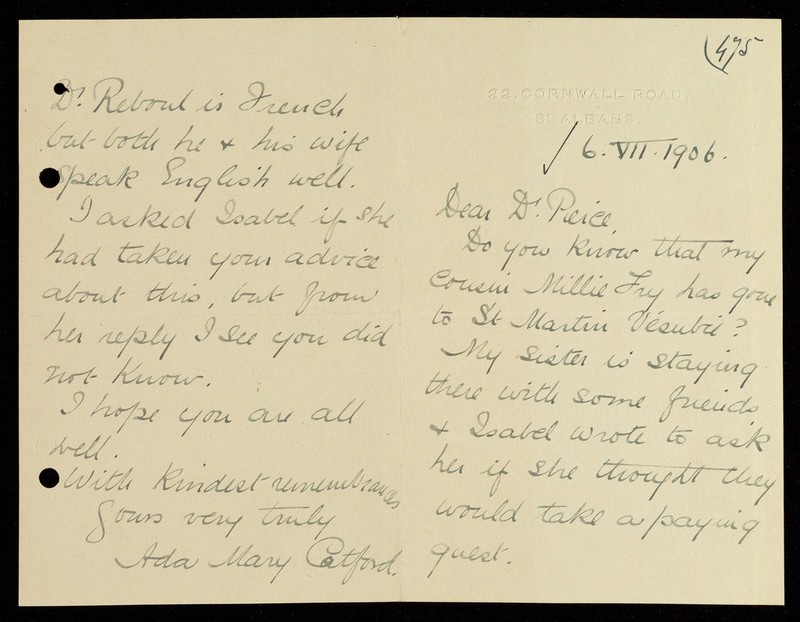 475
22, CORNWALL ROAD,
ST ALBANS.
6. VII. 1906.
Dear Dr. Pierce,
Do you know that my
cousin Millie Fry has gone
to St Martin Vésubie?
My sister is staying
there with some friends
& Isabel wrote to ask
her if she thought they
would take a paying
guest.
Dr. Reboul is French
but both he & his wife
speak English well.
I asked Isabel if she
had taken your advice
about this, but from
her reply I see you did
not know.
I hope you are all
well.
With kindest remembrances
Yours very truly
Ada Mary Catford.